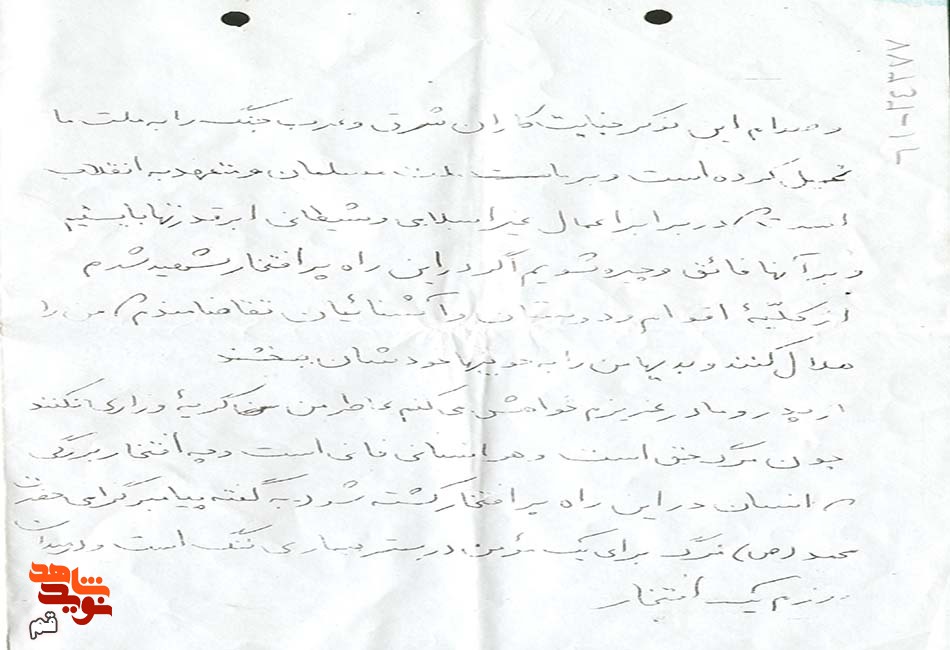 ۶۱-۲۴۳۷۷
و صدام این نوکر جنایت کاران شرق و غرب جنگ را به ملت ما
تحمیل کرده است و بر ماست ملت مسلمان و متعهد به انقلاب
است که در برابر اعمال غیر اسلامی و شیطانی ابرقدرتها بایستیم
و بر آنها فائق و چیره شویم اگر در این راه پر افتخار شهید شدم
از کلیّهٔ اقوام و دوستان و آشنائیان تقاضا مندم که من را
حلال کنند و بدیهای من را به خوبیها خودشان ببخشند
از پدر و مادر عزیزم خواهش می کنم بخاطر من گریهٔ و زاری نکنند
چون مرگ حق است و هر انسانی فانی است و چه افتخار بزرگی
که انسان در این راه پر افتخار کشته شود به گفته پیامبر گرامی حضرت
محمد (ص) مرگ برای یک مؤمن در بستر بیماری ننگ است و در میدان
رزم یک افتخار
نوید شاهد
قم